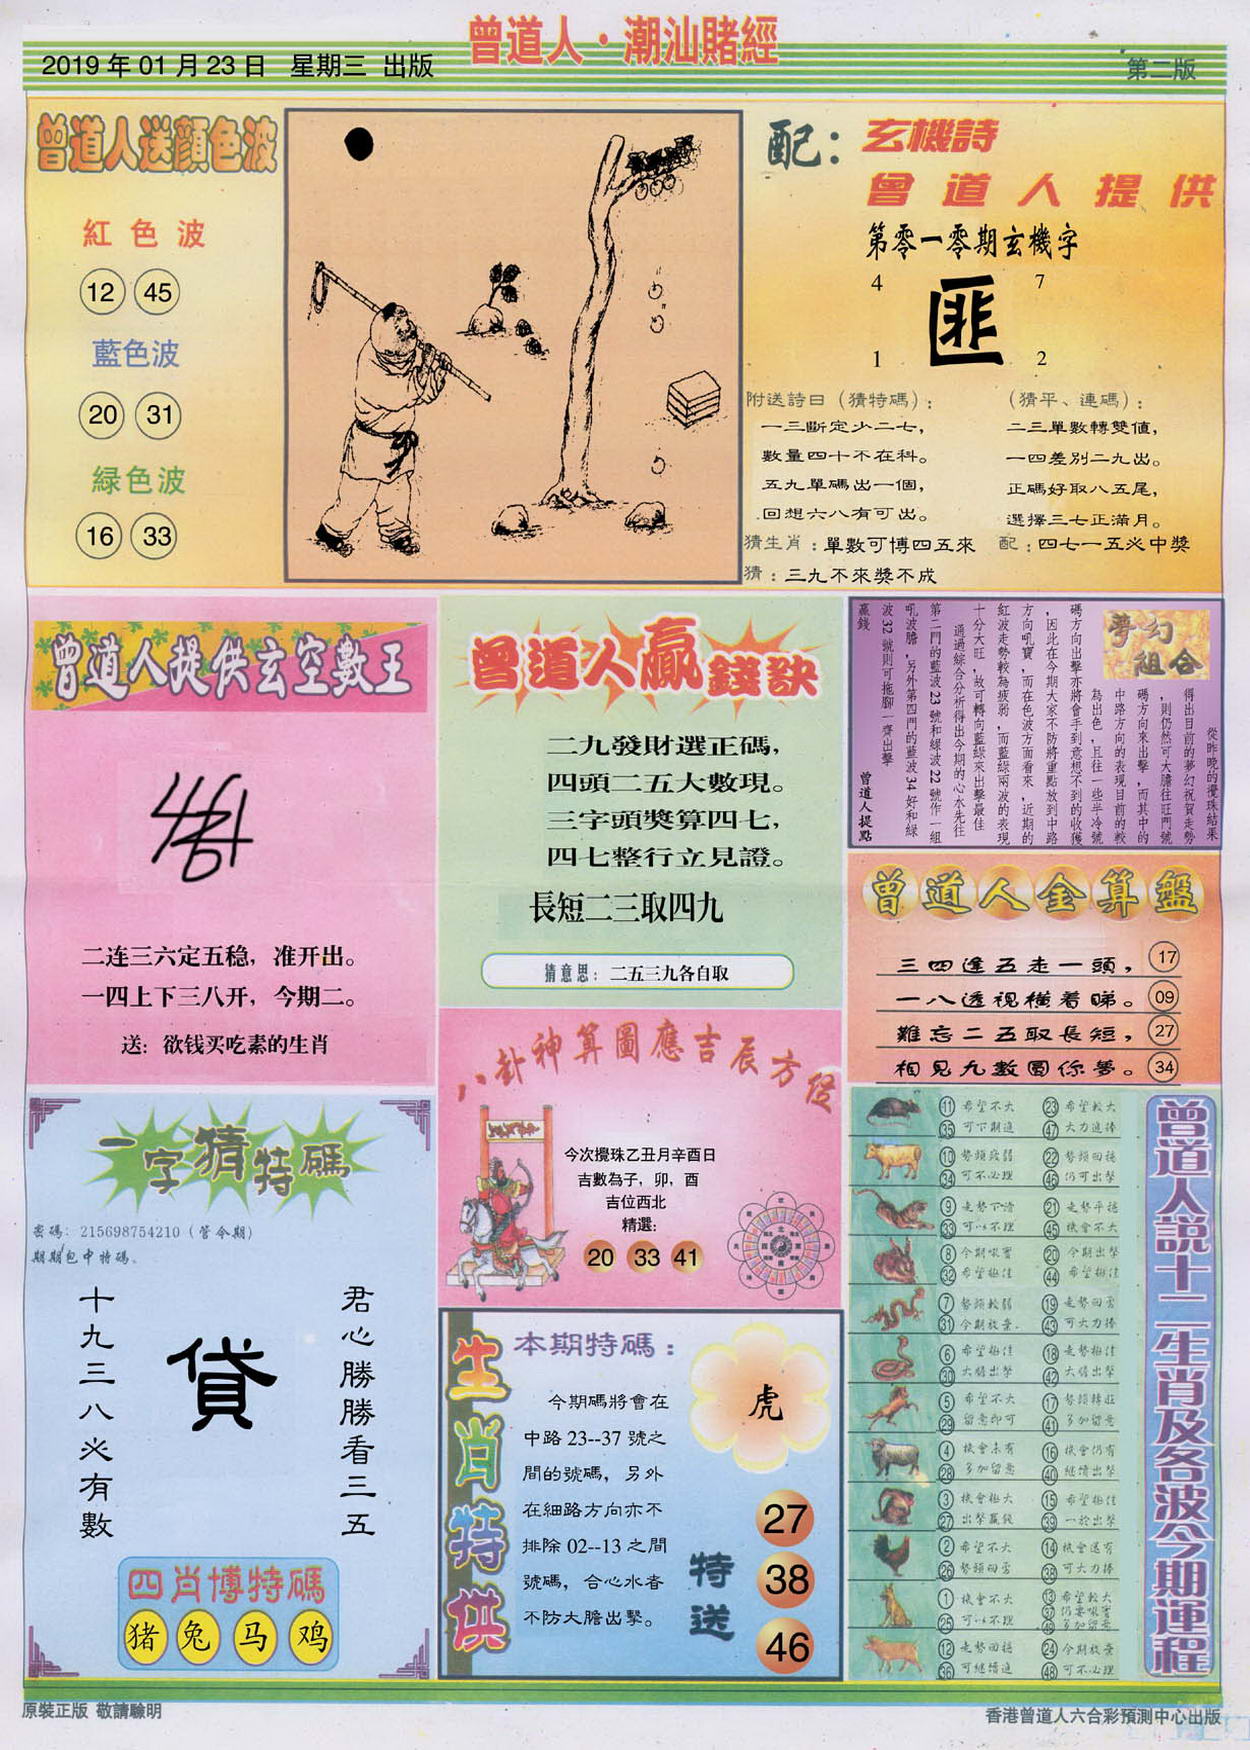 曾道人·潮汕賭經
2019年01月23日 星期三 出版
第二版
曾道人送顏色波
紅色波
12 45
藍色波
20 31
緑色波
16 33
配：玄機詩
曾道人提供
第零一零期玄機字
4 7
匪
1 2
附送詩曰（猜特碼）：
一三斷定少二七，
數量四十不在科。
五九單碼出一個，
回想六八有可出。
（猜平、連碼）：
二三單數轉雙值，
一四差別二九出。
正碼好取八五尾，
選擇三七正滿月。
猜生肖：單數可博四五來 配：四七一五必中獎
猜：三九不來獎不成
曾道人提供玄空數王
二连三六定五稳，准开出。
一四上下三八开，今期二。
送：欲钱买吃素的生肖
曾道人贏錢訣
二九發財選正碼，
四頭二五大數現。
三字頭獎算四七，
四七整行立見證。
長短二三取四九
猜意思：二五三九各自取
夢幻
組合
從昨晚的攪珠結果
得出目前的夢幻祝賀走勢
，則仍然可大膽往旺門號
碼方向來出擊，而其中的
中路方向的表現目前的較
為出色，且往一些半冷號
碼方向出擊亦將會手到意想不到的收獲
，因此在今期大家不防將重點放到中路
方向吼寶，而在色波方面看來，近期的
紅波走勢較為疲弱，而藍綠兩波的表現
十分大旺，故可轉向藍綠來出擊最佳
通過綜合分析得出今期的心水先往
第二門的藍波23號和綠波22號作一組
吼波膽，另外第四門的藍波34好和綠
波32號則可拖腳一齊出擊
贏錢 曾道人提點
曾道人金算盤
三四逢五走一頭，17
一八透視橫着睇。09
難忘二五取長短，27
相見九數圓你夢。34
八卦神算圖應吉辰方位
今次攪珠乙丑月辛酉日
吉數為子，卯，酉
吉位西北
精選：
20 33 41
一字猜特碼
密碼：215698754210（管令期）
期期包中特碼。
君心勝勝看三五
貸
十九三八必有數
四肖博特碼
猪 兔 马 鸡
生肖特供
本期特碼：
今期碼將會在
中路23--37號之
間的號碼，另外
在細路方向亦不
排除02--13之間
號碼，合心水者
不防大膽出擊。
虎
特送
27
38
46
曾道人説十二生肖及各波今期運程
11 希望不大 23 希望較大
35 可下期追 47 大力追捧
10 勢頭疲弱 22 勢頭回穩
34 可不必理 46 仍可出擊
9 走勢下滑 21 走勢平穩
33 可以不理 45 機會不大
8 今期吼實 20 今期出擊
32 希望極佳 44 希望極佳
7 勢頭較弱 19 走勢回雲
31 今期放棄. 43 可大力捧
6 希望極佳 18 走勢極佳
30 大膽出擊 42 大膽出擊
5 希望不大 17 勢頭轉旺
29 留意即可 41 多加留意
4 機會未有 16 機會仍有
28 多加留意 40 繼續出擊
3 機會極大 15 希望極佳
27 出擊贏錢 39 一於出擊
2 希望不大 14 機會還有
26 勢頭回雲 38 可大力捧
1 機會不大 13 希望較大
25 可以不理 37 仍要吼實
49 多加留意
12 走勢回穩 24 今期放棄
36 可繼續追 48 可不必理
原裝正版 敬請驗明
香港曾道人六合彩預測中心出版